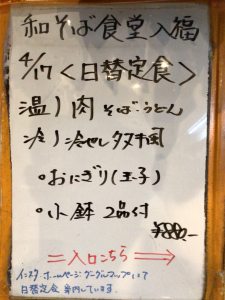 和そば食堂入福
4/17 <日替定食>
温) 肉そば・うどん
冷) 冷やしタヌキ風
・おにぎり(玉子)
・小鉢 2品付
¥880.-
=入口こちら⇒
インスタ・ホームページ・グーグルマップにて
日替定食 案内しています。